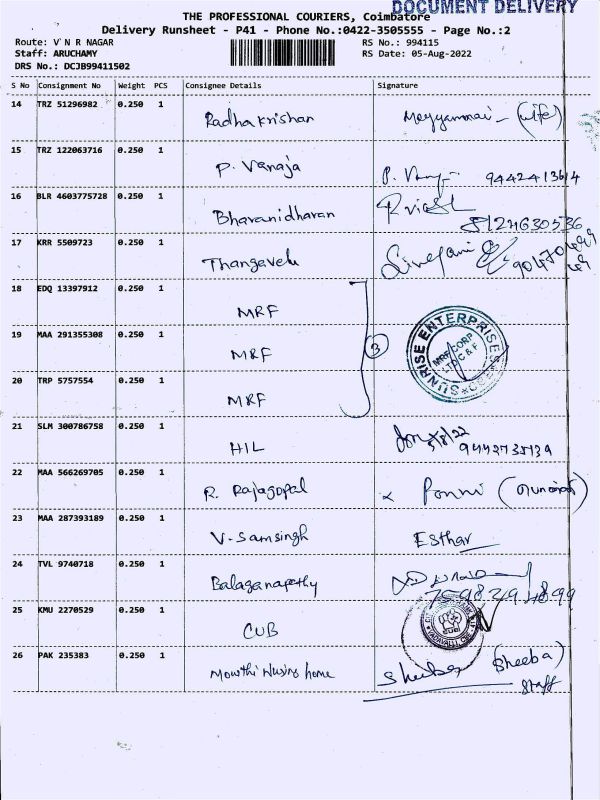 DOCUMENT DELIVERY
THE PROFESSIONAL COURIERS, Coimbatore
Delivery Runsheet - P41 - Phone No.:0422-3505555 - Page No.:2
Route: V N R NAGAR
RS No.: 994115
Staff: ARUCHAMY
RS Date: 05-Aug-2022
DRS No.: DCJB99411502
S No Consignment No Weight PCS Consignee Details Signature
14 TRZ 51296982 0.250 1 Radhakrishan Meyyammai - (wife)
15 TRZ 122063716 0.250 1 P. Vanaja
9442413614
16 BLR 4603775728 0.250 1 Bharanidharan
8124630536
17 KRR 5509723 0.250 1 Thangavelu
18 EDQ 13397912 0.250 1 MRF
19 MAA 291355308 0.250 1 MRF 3
SUNRISE ENTERPRISES
MRF CORP
LTD C & F
20 TRP 5757554 0.250 1 MRF
21 SLM 300786758 0.250 1 HIL
5/8/22
22 MAA 566269705 0.250 1 R. Rajagopal Ponni
23 MAA 287393189 0.250 1 V. Samsingh Esthar
24 TVL 9740718 0.250 1 Balaganapathy
7598294899
25 KMU 2270529 0.250 1 CUB
CUB
26 PAK 235383 0.250 1 home Sheeba (Sheeba)
Staff